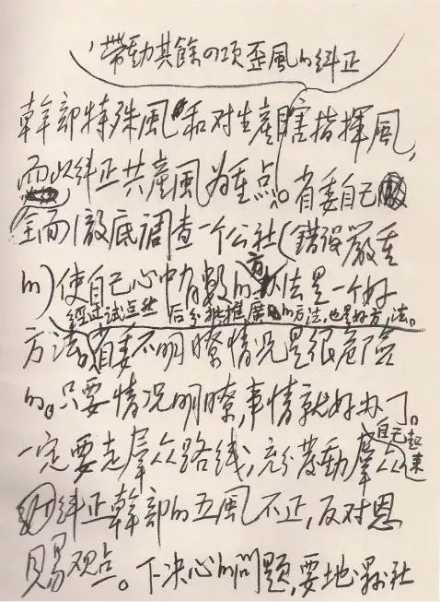 带動其餘四项歪風的纠正
幹部特殊風和对生產瞎指揮風,
而以纠正共產風为重点。省委自己
全面徹底调查一个公社(錯误嚴重
的)使自己心中有數的方法是一个好
经过试点然后分批推廣的方法,也是好方法。
方法。省委不明瞭情况是很危险
的。只要情况明瞭,事情就好办了。
一定要走羣众路线,充分發動羣众自己起来
纠正幹部的五風不正,反对恩
赐观点。下决心的问题,要地縣社